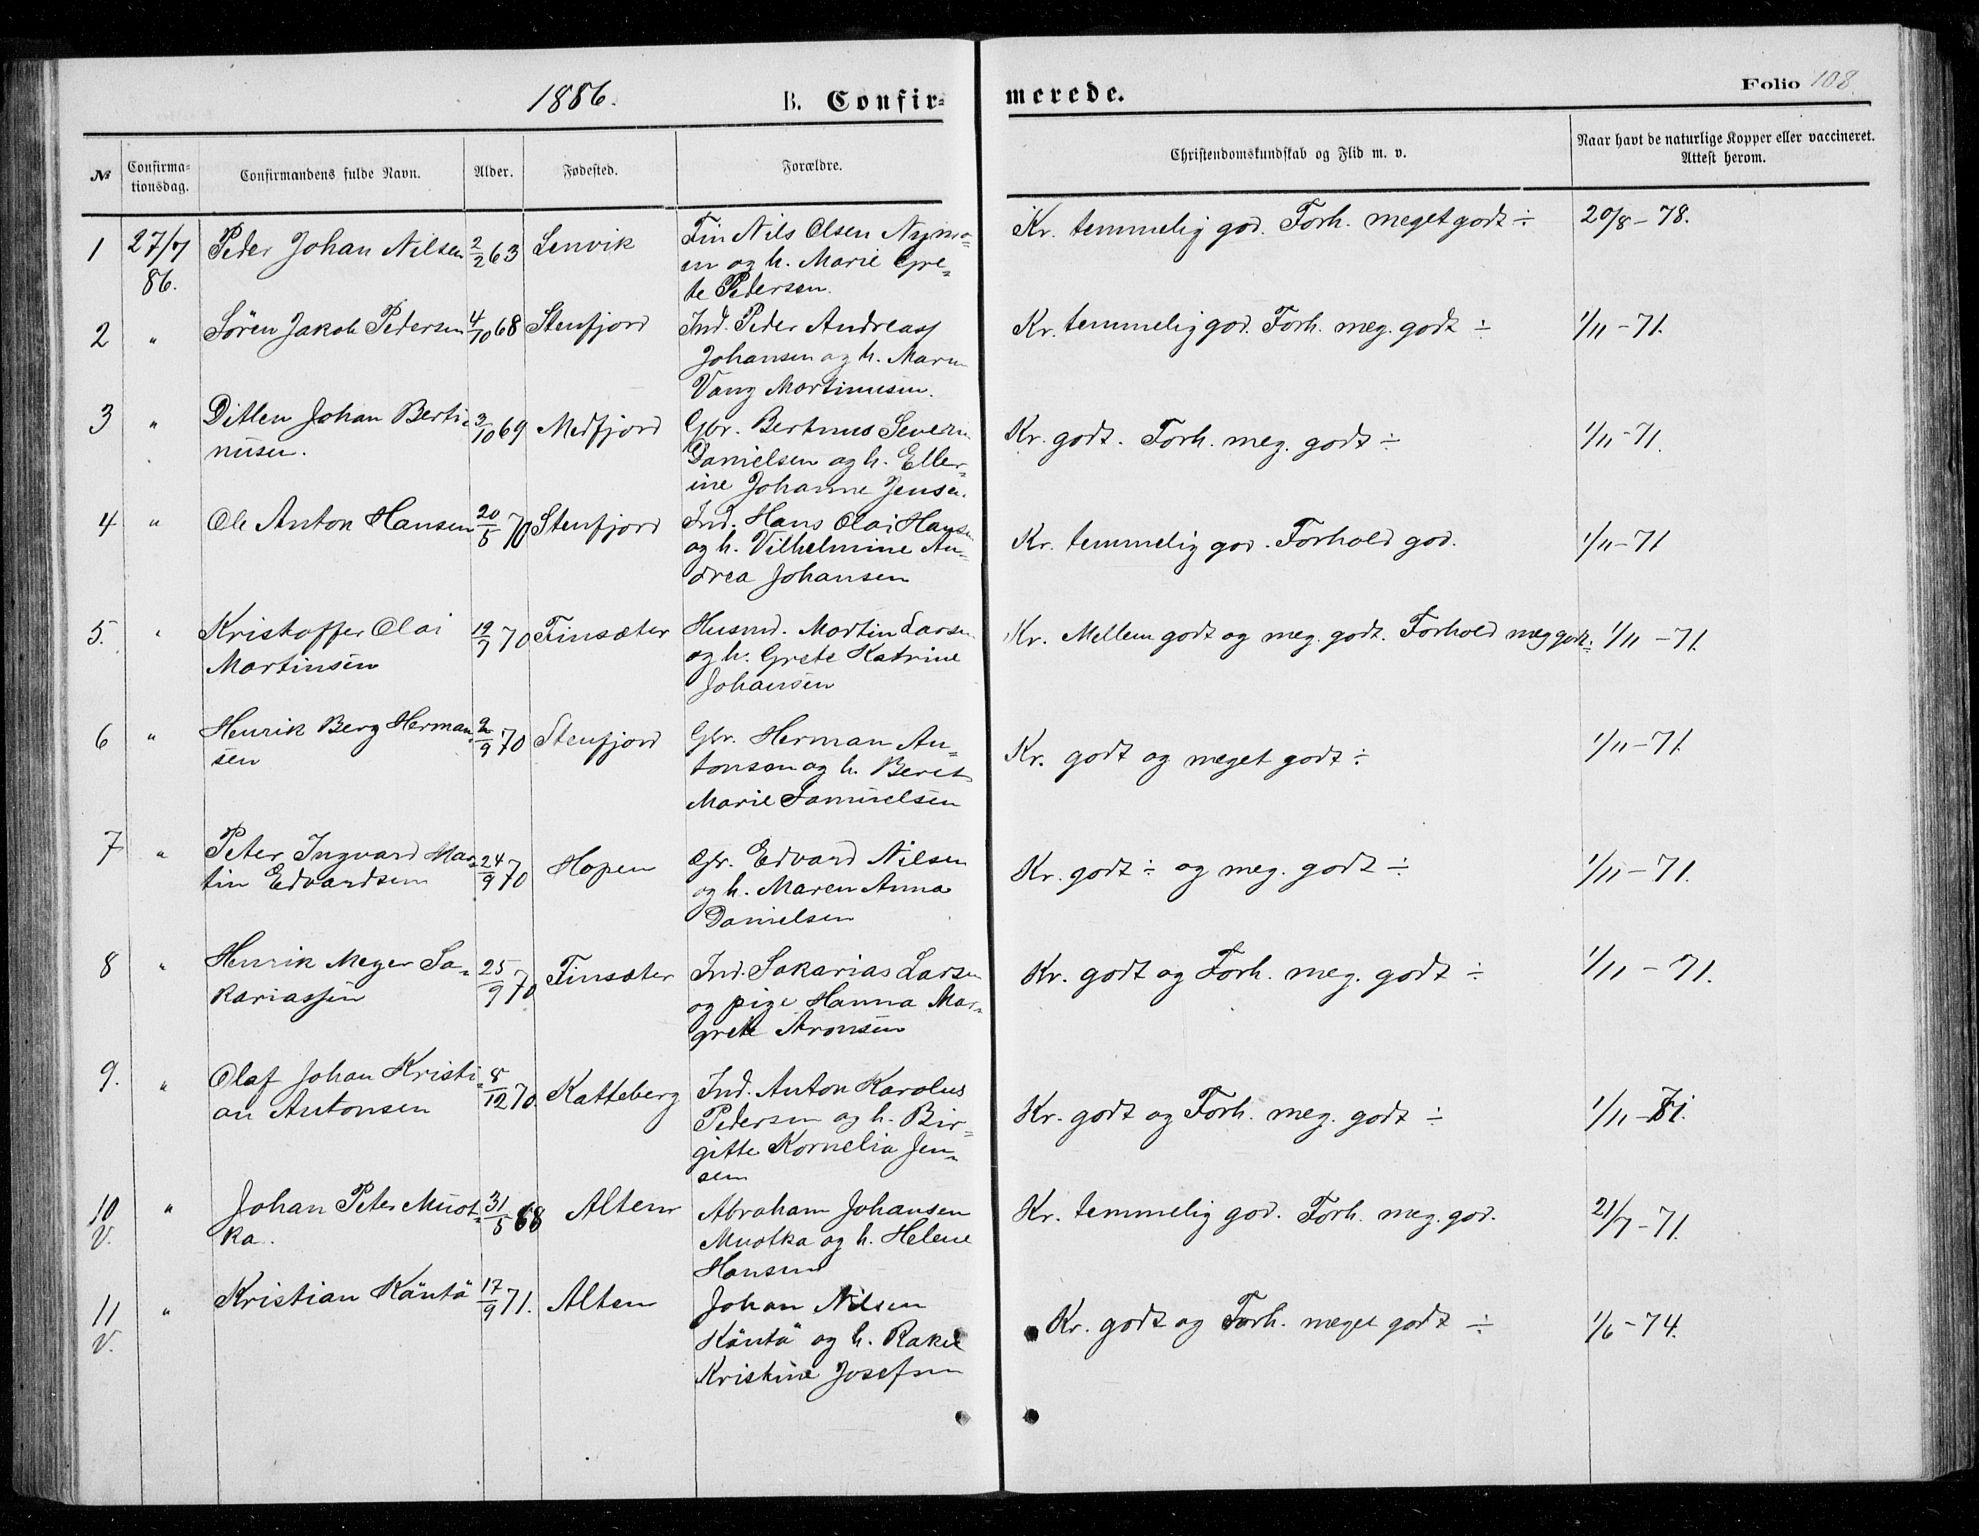 1886. B. Confir-
merede. Folio 108.
№ Confirma-
tionsdag. Confirmandens fulde Navn. Alder. Fødested. Forældre. Christendomskundskab og Flid m. v. Naar havt de naturlige Kopper eller vaccineret.
Attest herom.
1 27/7 Peder Johan Nilsen 2/2 63 Lenvik Fin Nils Olsen Nymo- Kr. temmelig god. Forh. meget godt ÷ 20/8 - 78.
86. en og h. Marie Gre-
te Pedersen.
2 " Sören Jakob Pedersen 4/10 68 Stenfjord Ind. Peder Andreas Kr. temmelig god. Forh. meg. godt ÷ 1/11 - 71.
Johansen og h. Maren
Vang Martinusen.
3 " Ditlen Johan Berti- 3/10 69 Medfjord Gbr. Bertinus Severin Kr. godt. Forh. meg. godt ÷ 1/11 - 71.
nusen. Danielsen og h. Eller-
ine Johanne Jensen.
4 " Ole Anton Hansen 20/5 70 Stenfjord Ind. Hans Olai Hansen Kr. temmelig god. Forhold god. 1/11 - 71
og h. Vilhelmine An-
drea Johansen
5. " Kristoffer Olai 19/9 70 Finsæter Husmd. Martin Larsen Kr. Mellem godt og meg. godt. Forhold meg godt ÷ 1/11 - 71.
Martinsen og h. Grete Katrine
Johansen
6 " Henrik Berg Herman- 2/9 70 Stenfjord Gbr. Herman An- Kr. godt og meget godt ÷ 1/11 - 71.
sen tonsen og h. Beret
Marie Samuelsen
7 " Peter Ingvard Mar- 24/9 70 Hopen Gbr. Edvard Nilsen Kr. godt ÷ og meg. godt ÷ 1/11 - 71.
tin Edvardsen og h. Maren Anna
Danielsen
8 " Henrik Meyer Sa- 25/9 70 Finsæter Ind. Sakarias Larsen Kr. godt og Forh. meg. godt ÷ 1/11 - 71.
kariassen og pige Hanna Mar-
grete Aronsen
9. " Olaf Johan Kristi- 8/12 70. Katteberg Ind. Anton Karolus Kr. godt og Forh. meg. godt ÷ 1/11 - 71.
an Antonsen Pedersen og h. Bir-
gitte Kornelia Jen-
sen
10 " Johan Peter Muot- 31/5 68 Alten Abraham Johansen Kr. temmelig god. Forh. meg. god. 21/7 - 71.
V. ka. Muotka og h. Helene
Hansen
11 " Kristian Käntä 17/9 71. Alten Johan Nilsen Kr. godt og Forh. meget godt ÷ 1/6 - 74.
V. Käntä og h. Rakel
Kristine Josefsen